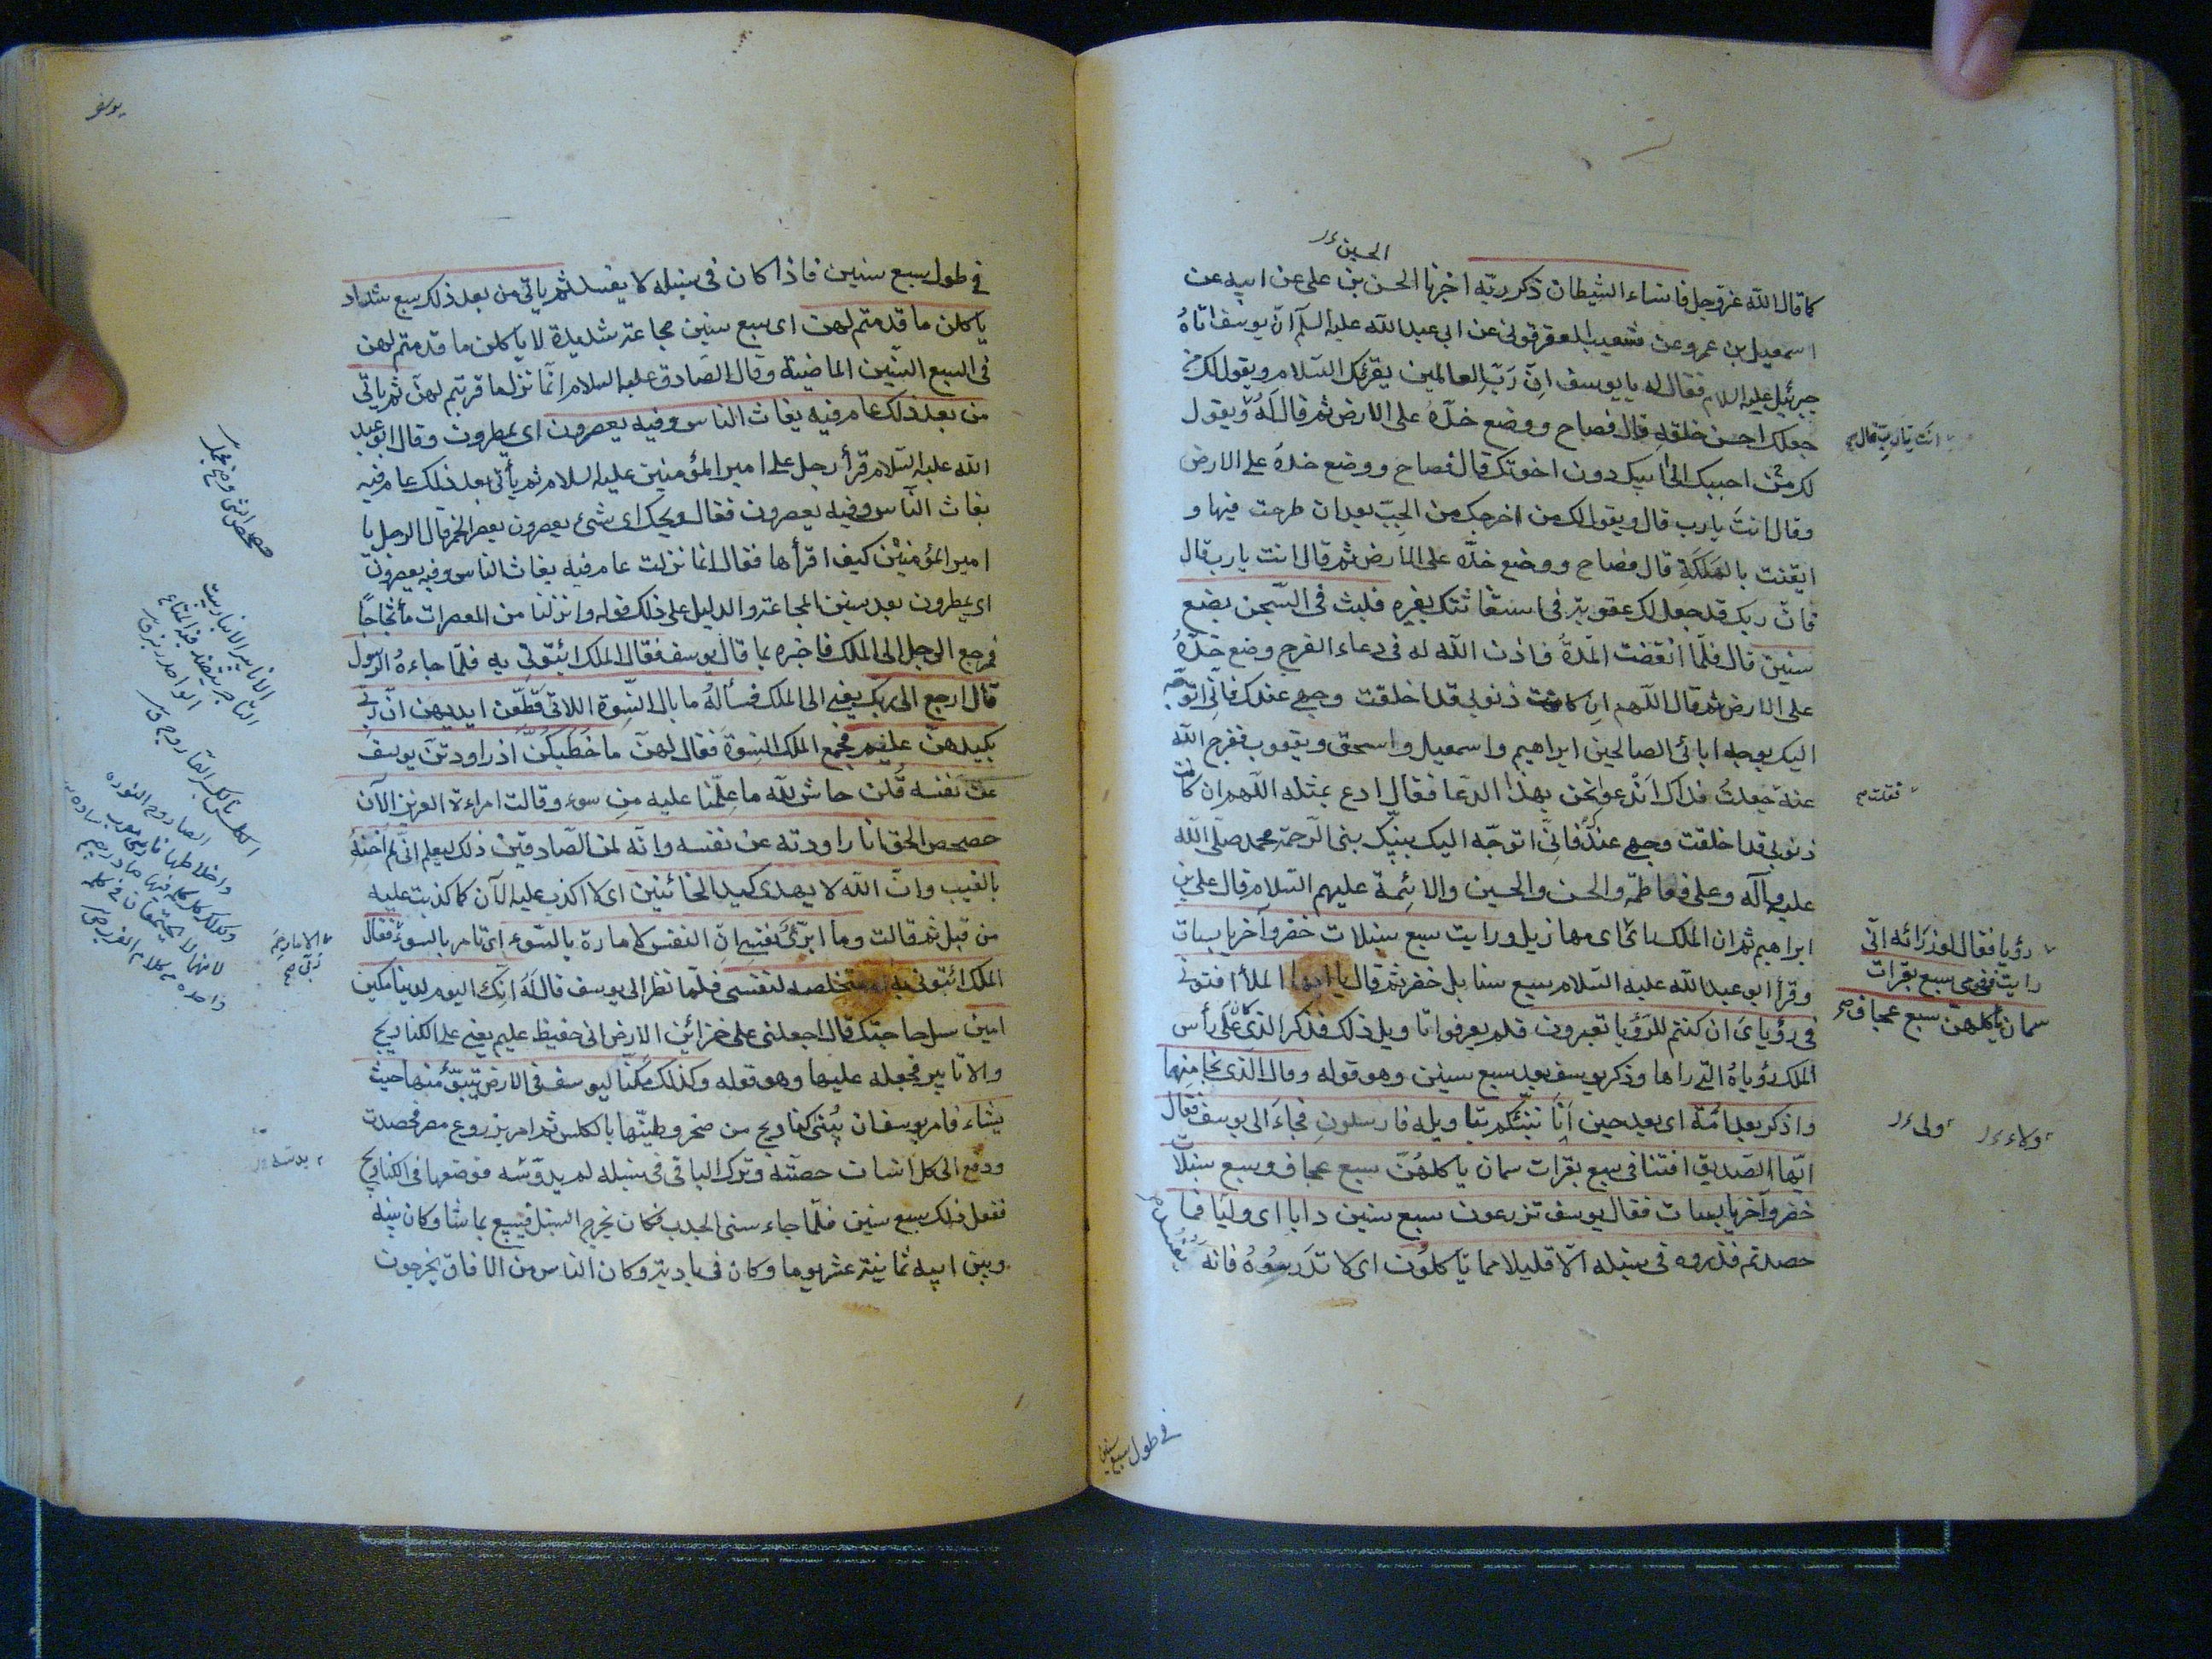 الحسين
كما قال الله عز وجل فانساه الشيطان ذكر ربه اخبرنا الحسن بن على عن ابيه عن
اسمعيل بن عمر وعن شعيب العقرقوفى عن ابى عبد الله عليه السلم ان يوسف اتاهُ
جبرئيل عليه السلام فقال له يا يوسف اِنّ رَبّ العالمين يقرئك السّلام ويقول لك من
جعلك احسن خلقه قال فصاح ووضع خدّهُ على الارض ثم قال لَهُ ويقول
لك من احببك الى ابيك دون اخوتك قال فصاح ووضع خدهُ على الارض
وقال انتَ يا رب قال ويقول لك من اخرجك من الجبّ بعد ان طرحت فيها و
ايقنت بالهَلَكَةِ قال فصاح ووضع خدّه على الارض ثم قال انت يا رب قال
فانّ ربك قد جعل لك عقوبة فى استغاثتك بغيره فلبث فى السّجن بضع
سنين قال فلمّا انقضت المدّةُ فاذن الله له فى دعاء الفرج وضع خدّهُ
على الارض ثم قال اللّهم اِن كانت ذنوبى قد اخلقت وجهى عندك فانّى اتوجّه
اليك بوجه ابائى الصالحين ابراهيم واسمعيل واسحق ويعقوب ففرج الله
عنه جعلتُ فداك اَنَدعو نحن بهذا الدعا فقال ادع بمثله اللّهم ان كانت
ذنوبى قد اخلقت وجهى عندك فانّى اتوجّه اليك بنبيّك نبى الرّحمة محمد صلى الله
عليه وآله وعلى وفاطمه والحسن والحسين والائمة عليهم السّلام قال على بن
ابراهيم ثم ان الملك رائ رؤيا اى مهازيل ورايت سبع سنبلات خضر وآخر يابسات
وقرأ ابو عبد الله عليه السّلام سبع سنابل خضر ثم قال يا ايها الملأ افتونى
فى رؤياىَ ان كنتم للرؤيا تعبرون فلم يعرفوا تاويل ذلك فذكر الذى كان على رأس
الملك رؤياهُ التى راها وذكر يوسف بعد سبع سنين وهو قوله وقال الذى نجا منهما
واذكر بعد اُمّة اى بعد حين اَنَا ننبئكم بتاويله فارسلونِ فجاءَ الى يوسف فقال
ايّها الصّديق افتنا فى سبع بقرات سمان ياكلهُنّ سبع عجاف وسبع سنبلات
خضر وآخر يابسات فقال يوسف تزرعون سبع سنين دابا اى وليًا فما
حصدتم فذروه فى سنبله الّا قليلا مما تاكلوُن اى لا تدَرسُوهُ فانه يفسد
انت يا رب قال
فقلت
رؤيا فقال لوزرائه انّى
رايت فى نومى سبع بقرات
سمان ياكلهن سبع عجاف صح
ولاء ولى
فى طول سبع سنين
يوسف
فى طول سبع سنين فاذا كان فى سنبله لا يفسد ثم ياتى من بعد ذلك سبع شداد
ياكلن ما قدمتم لهن اى سبع سنين مجاعة شديدة لا ياكلن ما قدمتم لهن
فى السبع السّنين الماضية وقال الصّادق عليه السلام انّما نزل ما قربتم لهنّ ثم ياتى
من بعد ذلك عام فيه يغاث الناس وفيه يعصرون اى يمطرون وقال ابو عبد
الله عليه السّلام قرأ رجل على امير المؤمنين عليه السلام ثم يأتى بعد ذلك عام فيه
يغاث النّاس وفيه يعصرون فقال ويحك اى شئ يعصرون يعصر الخمر قال الرجل يا
امير المؤمنين كيف اقرأها فقال انما نزلت عام فيه يغاث الناس وفيه يعصرون
اى يمطرون بعد سنين المجاعة والدليل على ذلك قوله وانزلنا من المعصرات مأ ثجّاجًا
فرجع الرجل الى الملك فاخبره بما قال يوسف فقال الملك ائتونى به فلمّا جاءهُ الرسول
قال ارجع الى ربك يعنى الى الملك فسألهُ ما بال النّسوة اللاتى قَطّعن ايديهن انّ ربّى
بكيدهنّ عليم فجمع الملك النسوة فقال لهنّ ما خَطبكُنّ اذ راودتنّ يوسف
عن نفسه قُلن حاش لله ما علمنا عليه من سوء وقالت امراءة العزيز الآن
حصحص الحق انا راودته عن نفسه وانّه لمن الصّادقين ذلك ليعلم انّى لم اخنهُ
بالغيب وانّ الله لا يهدى كيد الخائنين اى لا اكذب عليه الآن كما كذبت عليه
من قبل ثم قالت وما ابرّئُ نفسى اِنّ النفس لامارة بالسّوء اى تامر بالسوء فقال
الملك ائتونى به استخلصه لنفسى فلمّا نظر الى يوسف قال لَهُ انّك اليوم لدينا مكين
امين سل حاجتك قال اجعلنى على خزائن الارض انى حفيظ عليم يعنى على الكناديج
والانابير فجعله عليها وهو قوله وكذلك مكّنّا ليوسف فى الارض يتبوّء منها حيث
يشاء فامر يوسف ان يُبنى كناديج من صخر وطيّنها بالكلس ثم امر بزروع مصر فحصدت
ودفع الى كل انسان حصّته وترك الباقى فى سنبله لم يدوّسه فوضعها فى الكناديج
ففعل ذلك سبع سنين فلمّا جاء سنى الجدب فكان يخرج السنبل فيبيع بما شا وكان بينه
وبين ابيه ثمانية عشر يوما وكان فى بادية وكان الناس من الافاق يخرجون
حصحص اى وضح
الانابير الانبار بيت
التاجر ينضد فيه المتاع
الواحد نبر ق
الكلس بالكسر الصاروج ق
الصاروج النورة
واخلاطها فارسى معرب
وكذلك كل كلمة فيها صاد وجيم
لانهما لا يجتمعان فى كلمة
واحدة من كلام العرب ص